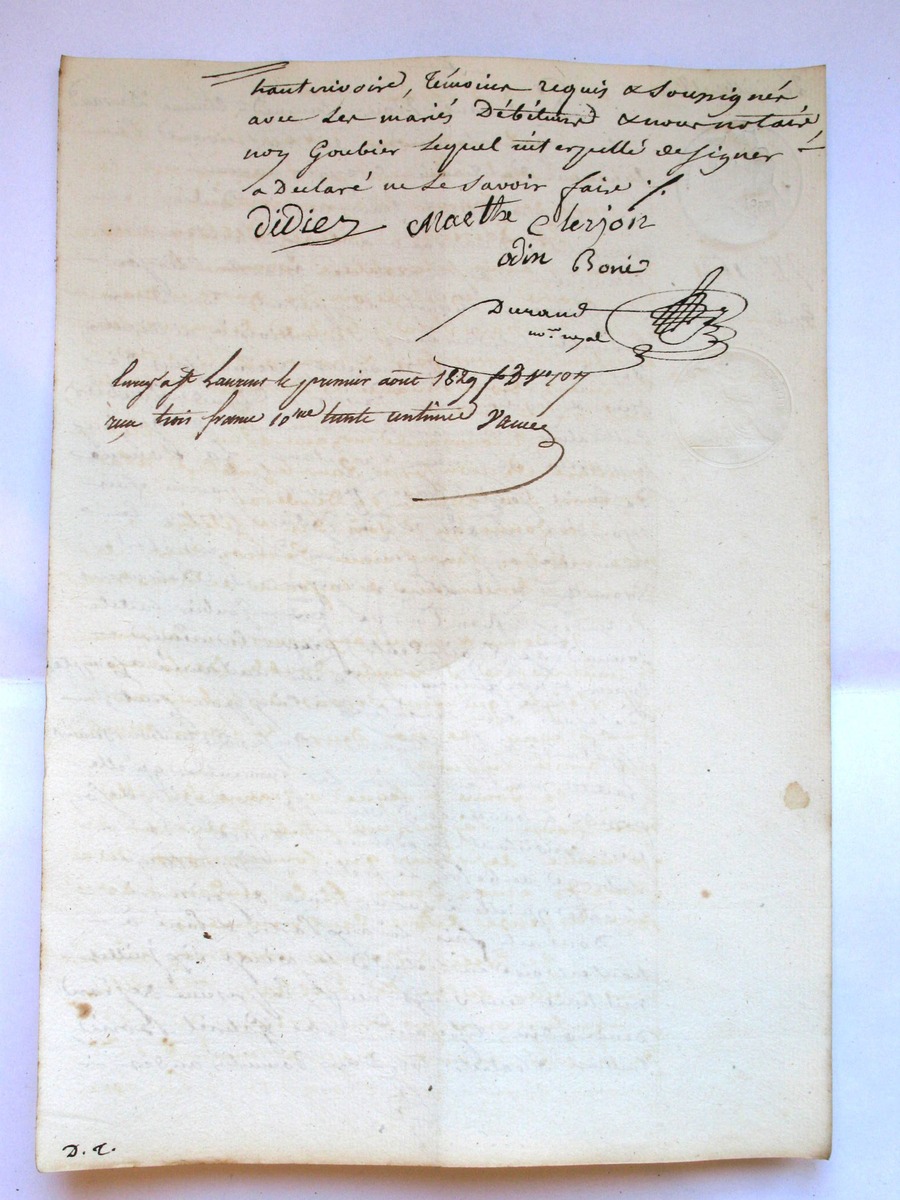 hauterivoire, témoins requis & soussignés
avec les mariés Débiteurs & nous notaire,
non Goubier lequel interpellé de signer
a Declaré ne le savoir faire ./.
Didier Marthe Clerjon
odin Boné
Durand
no.re royal
a St Laurent le premier aout 1829 fo
reçu trois francs 10me trente centimes
D. T.